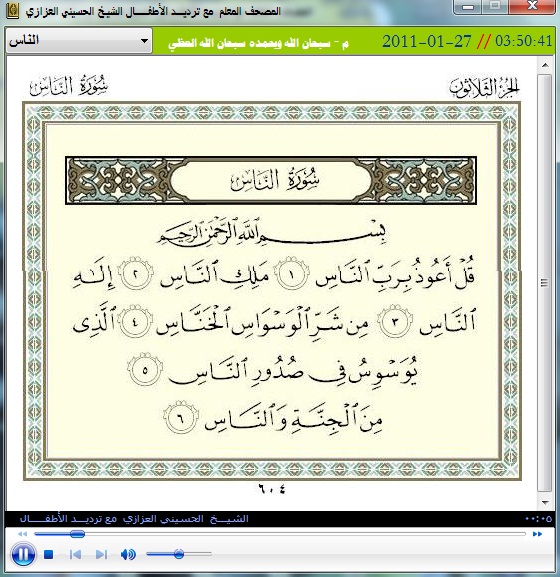 المصحف المعلم مع ترديـد الأطفــال الشيخ الحسيني العزازي
الناس
م - سبحان الله وبحمده سبحان الله العظي
2011-01-27 // 03:50:41
الجزء الثلاثون
سورة الناس
سورة الناس
بسم الله الرحمن الرحيم
قُلْ أَعُوذُ بِرَبِّ ٱلنَّاسِ ١ مَلِكِ ٱلنَّاسِ ٢ إِلَٰهِ
ٱلنَّاسِ ٣ مِن شَرِّ ٱلْوَسْوَاسِ ٱلْخَنَّاسِ ٤ ٱلَّذِى
يُوَسْوِسُ فِى صُدُورِ ٱلنَّاسِ ٥
مِنَ ٱلْجِنَّةِ وَٱلنَّاسِ ٦
٦٠٤
الشيـــخ الحسيني العزازي مع ترديد الأطفــــال
٠٠:٠٥